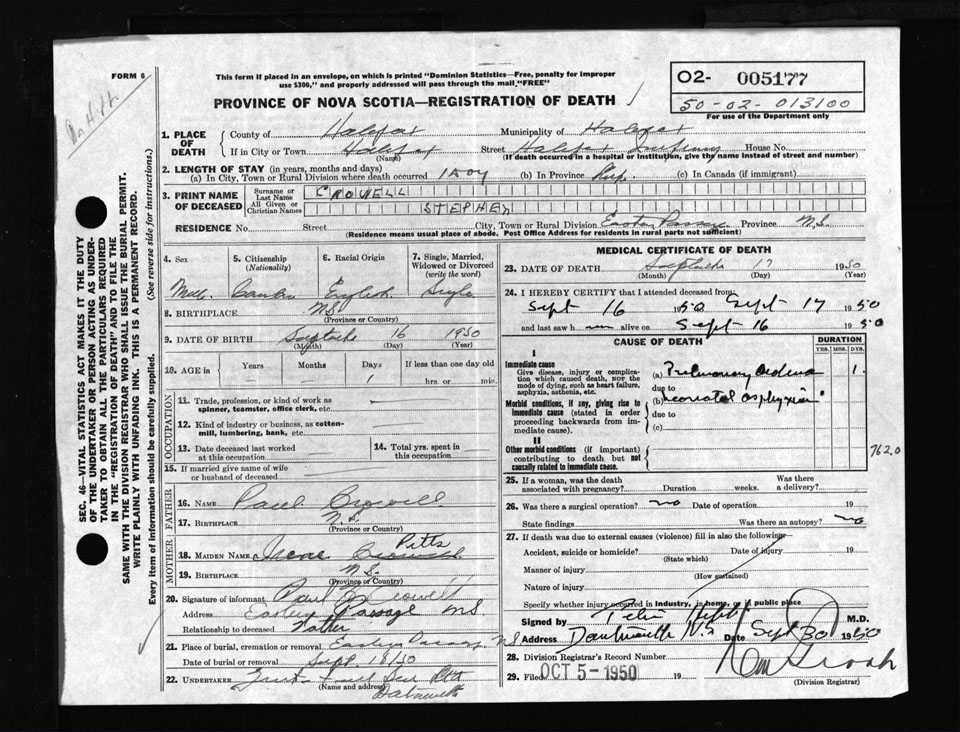 FORM 6
This form if placed in an envelope, on which is printed "Dominion Statistics—Free, penalty for improper
use $300," and properly addressed will pass through the mail "FREE"
O2- 005177
50-02-013100
For use of the Department only
PROVINCE OF NOVA SCOTIA—REGISTRATION OF DEATH
1. PLACE OF DEATH
County of Halifax Municipality of Halifax
If in City or Town Halifax Street Halifax Infirmary House No.
(Name) (If death occurred in a hospital or institution, give the name instead of street and number)
2. LENGTH OF STAY (in years, months and days)
(a) In City, Town or Rural Division where death occurred 1 day (b) In Province (c) In Canada (if immigrant)
3. PRINT NAME OF DECEASED
Surname or Last Name CROWELL
All Given or Christian Names STEPHEN
RESIDENCE No. Street City, Town or Rural Division Eastern Passage Province N.S.
(Residence means usual place of abode. Post Office Address for residents in rural parts not sufficient)
4. Sex 5. Citizenship (Nationality) 6. Racial Origin 7. Single, Married, Widowed or Divorced (write the word)
Male English Single
8. BIRTHPLACE NS
(Province or Country)
9. DATE OF BIRTH 16 1950
(Month) (Day) (Year)
10. AGE in Years Months Days If less than one day old
1 hrs. or min.
OCCUPATION
11. Trade, profession, or kind of work as spinner, teamster, office clerk, etc.
12. Kind of industry or business, as cotton-mill, lumbering, bank, etc.
13. Date deceased last worked at this occupation 14. Total yrs. spent in this occupation
15. If married give name of wife or husband of deceased
FATHER
16. NAME Paul Crowell
17. BIRTHPLACE N.S.
(Province or Country)
MOTHER
18. MAIDEN NAME Irene Pitts
19. BIRTHPLACE N.S.
(Province or Country)
20. Signature of informant Paul Crowell
Address Eastern Passage NS
Relationship to deceased Father
21. Place of burial, cremation or removal Eastern Passage NS
Date of burial or removal Sept. 18/50
22. UNDERTAKER
(Name and address)
MEDICAL CERTIFICATE OF DEATH
23. DATE OF DEATH 17 1950
(Month) (Day) (Year)
24. I HEREBY CERTIFY that I attended deceased from:
Sept 16 1950 Sept 17 1950
and last saw h alive on Sept 16 1950
CAUSE OF DEATH DURATION
YRS. MOS. DYS.
I
Immediate cause
Give disease, injury or complication which caused death, NOT the mode of dying, such as heart failure, asphyxia, asthenia, etc.
(a) Pulmonary Oedema 1
due to
Morbid conditions, if any, giving rise to immediate cause (stated in order proceeding backwards from immediate cause).
(b) neonatal asphyxia
due to
(c)
II
Other morbid conditions (if important) contributing to death but not causally related to immediate cause.
762.0
25. If a woman, was the death associated with pregnancy? Duration weeks. Was there a delivery?
26. Was there a surgical operation? no Date of operation 19
State findings Was there an autopsy? no
27. If death was due to external causes (violence) fill in also the following:
Accident, suicide or homicide? Date of injury 19
(State which)
Manner of injury
(How sustained)
Nature of injury
Specify whether injury occurred in industry, in home, or in public place
Signed by M.D.
Address N.S Date Sept 30 1950
28. Division Registrar's Record Number
29. Filed OCT 5-1950 19
(Division Registrar)
SEC. 46—VITAL STATISTICS ACT MAKES IT THE DUTY
OF THE UNDERTAKER OR PERSON ACTING AS UNDERTAKER
TO OBTAIN ALL THE PARTICULARS REQUIRED
IN THE "REGISTRATION OF DEATH" AND TO FILE THE
SAME WITH THE DIVISION REGISTRAR WHO SHALL ISSUE THE BURIAL PERMIT.
WRITE PLAINLY WITH UNFADING INK. THIS IS A PERMANENT RECORD.
Every item of information should be carefully supplied. (See reverse side for instructions.)